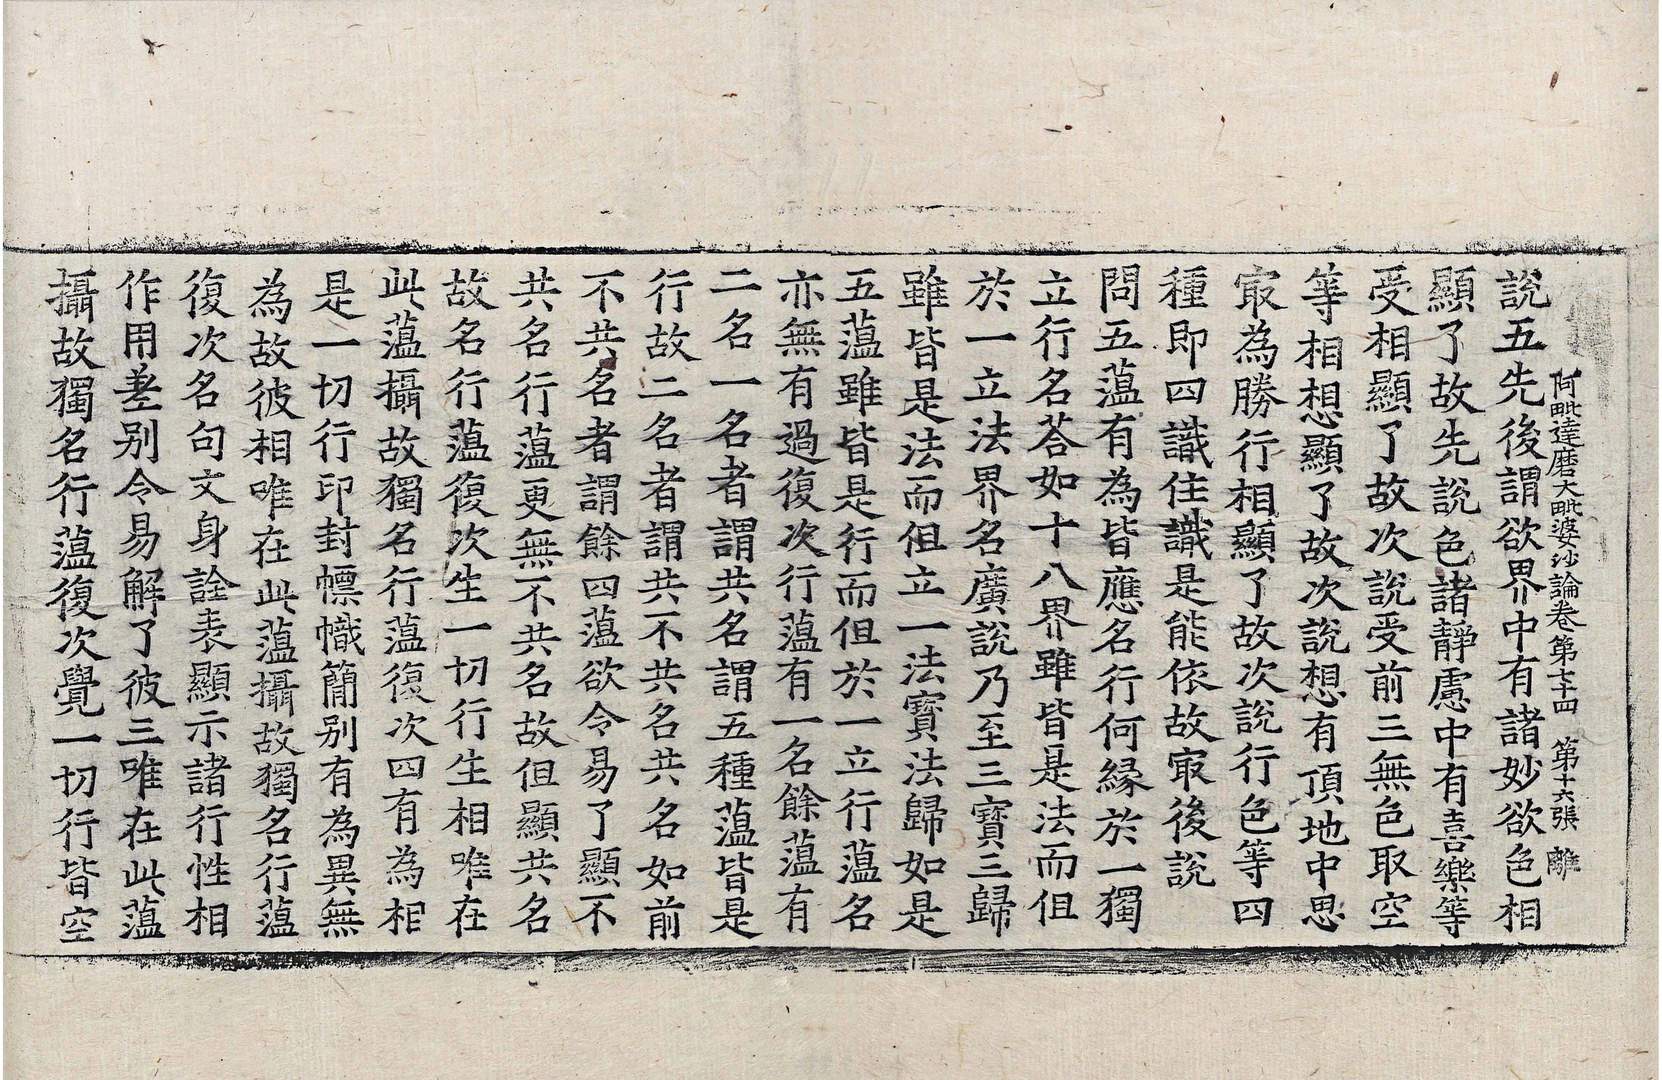 阿毗達磨大毗婆沙論卷第七十四 第十六張 離
說五先後謂欲界中有諸妙欲色相
顯了故先說色諸靜慮中有喜樂等
受相顯了故次說受前三無色取空
等相想顯了故次說想有頂地中思
冣為勝行相顯了故次說行色等四
種即四識住識是能依故冣後說
問五薀有為皆應名行何緣於一獨
立行名荅如十八界雖皆是法而但
於一立法界名廣說乃至三寶三歸
雖皆是法而但立一法寶法歸如是
五薀雖皆是行而但於一立行薀名
亦無有過復次行薀有一名餘薀有
二名一名者謂共名謂五種薀皆是
行故二名者謂共不共名共名如前
不共名者謂餘四薀欲令易了顯不
共名行薀更無不共名故但顯共名
故名行薀復次生一切行生相唯在
此薀攝故獨名行薀復次四有為相
是一切行印封幖幟簡别有為異無
為故彼相唯在此薀攝故獨名行薀
復次名句文身詮表顯示諸行性相
作用差别令易解了彼三唯在此薀
攝故獨名行薀復次覺一切行皆空